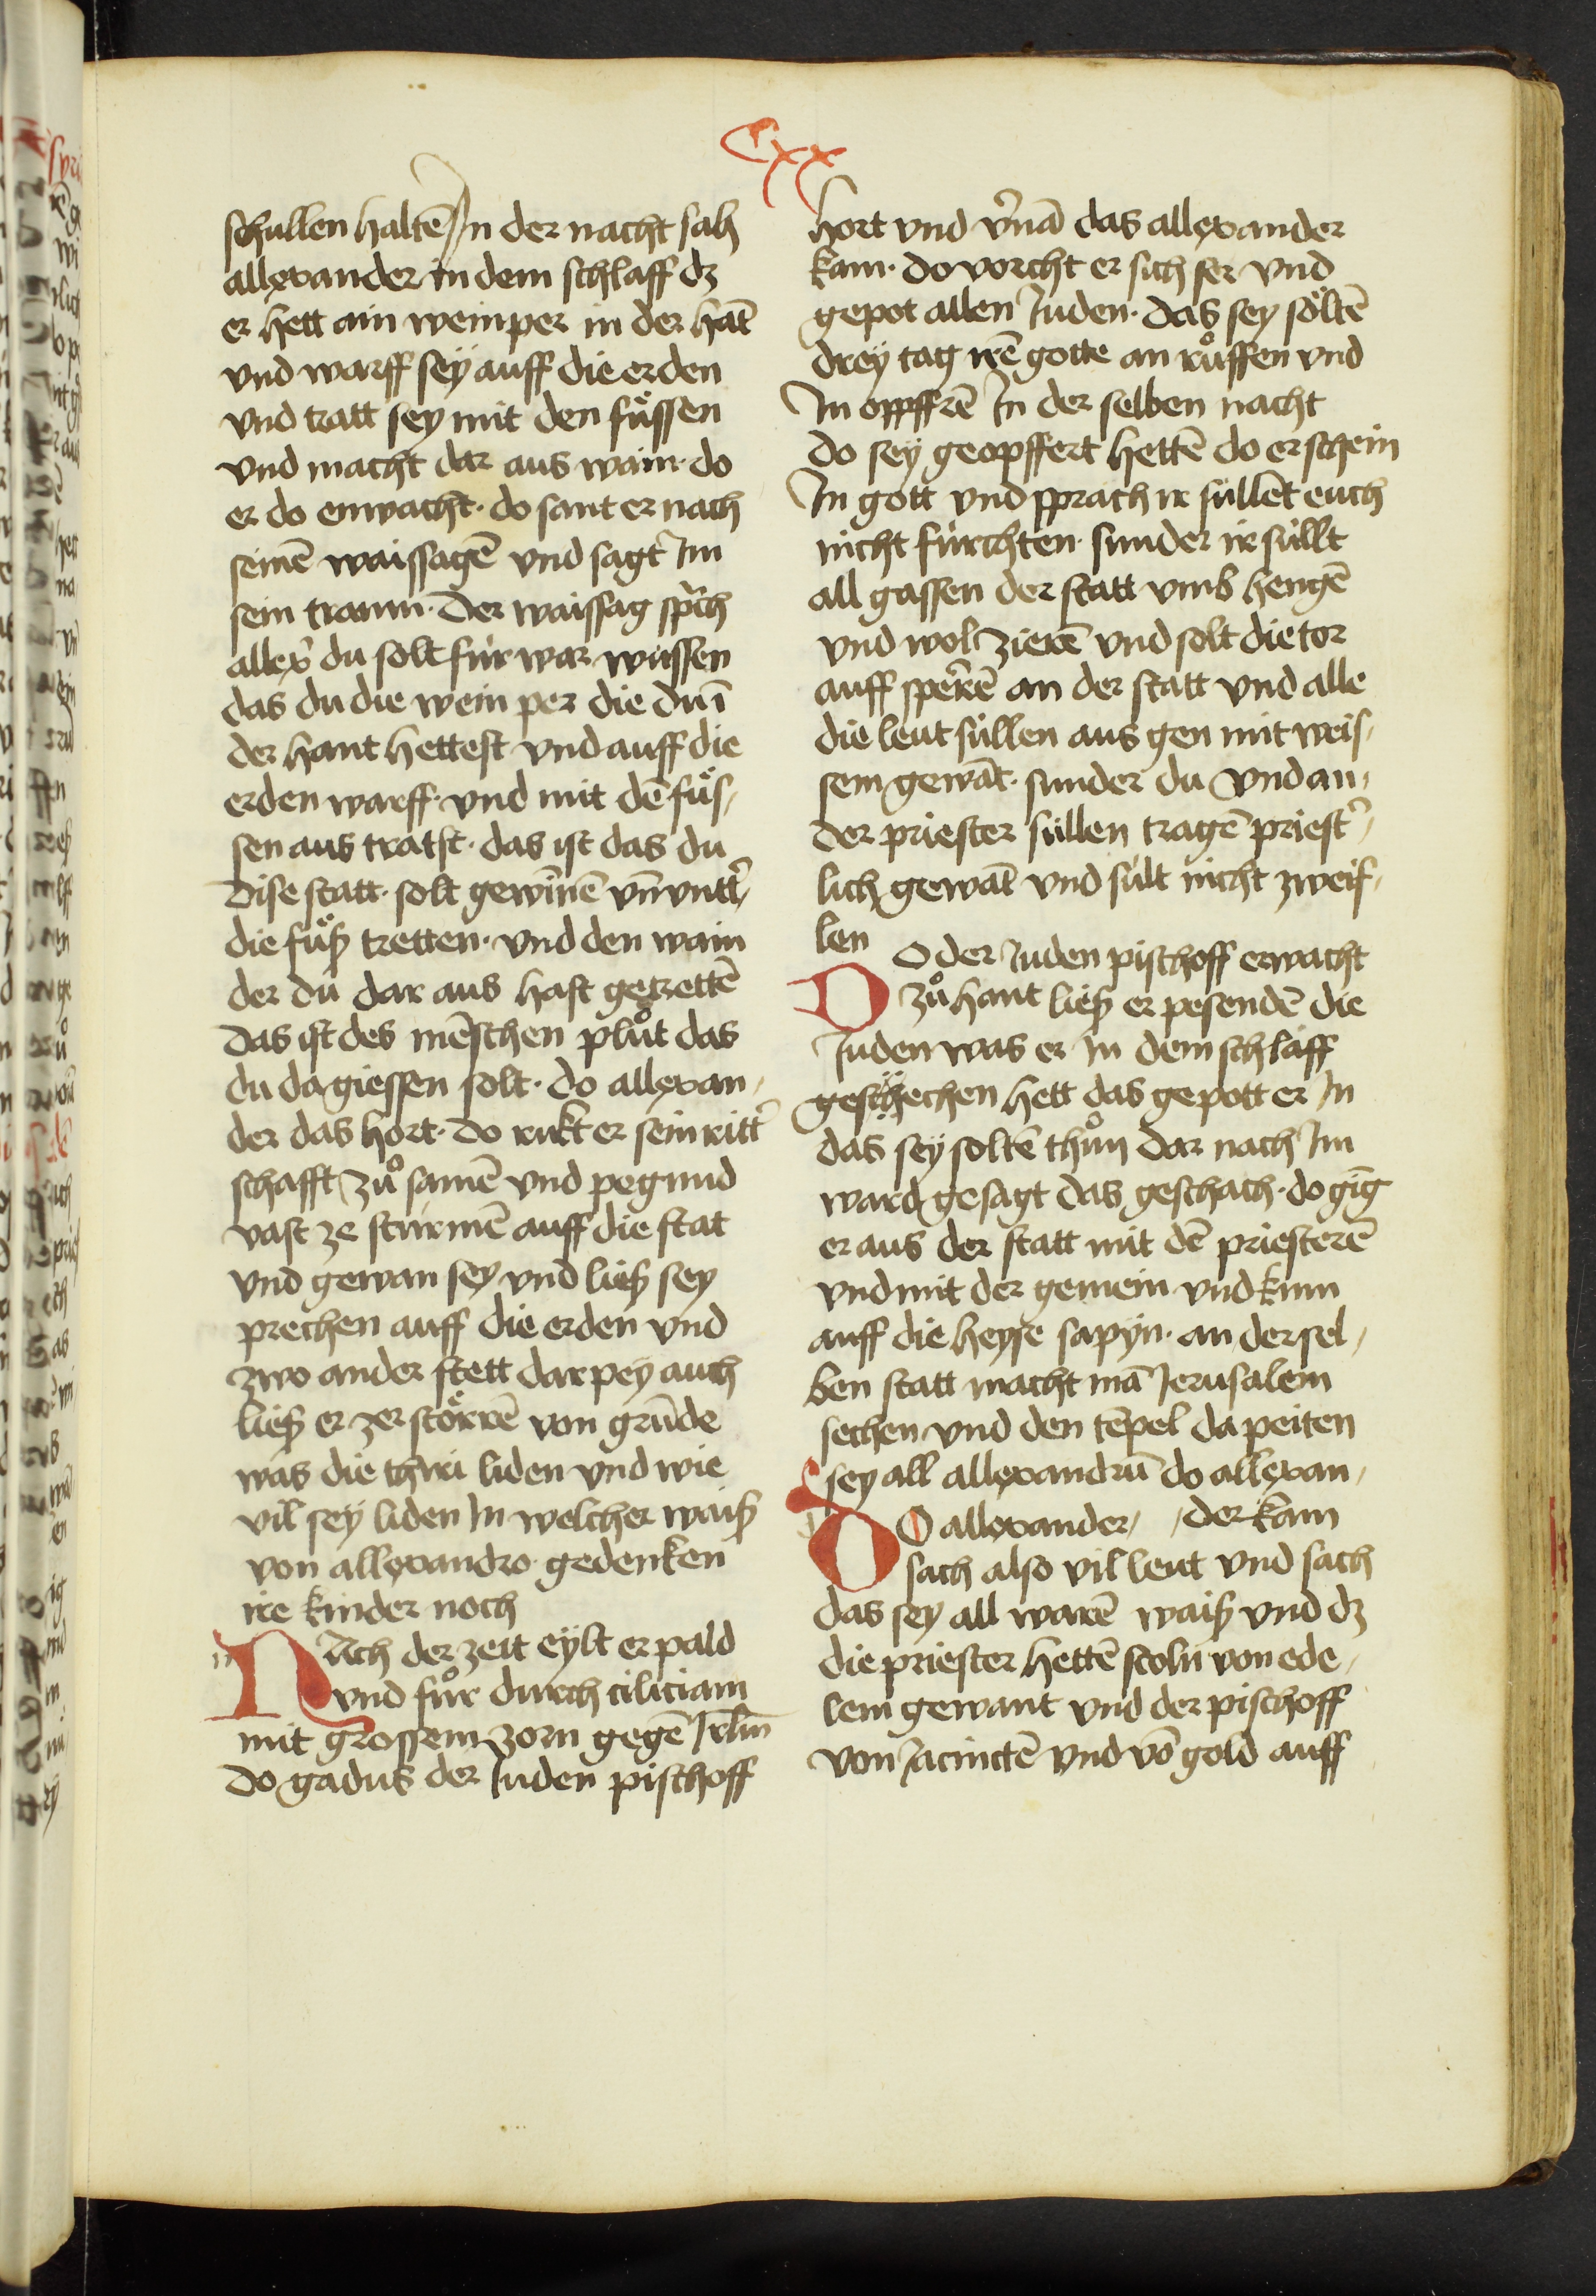 Cxx
schullen haltē In der nacht sach
allexander in dem schlaff dz
er hett ain weinper in der hāt
vnd warff sey auff die erden
vnd tratt sey mit den fuͤssen
vnd macht dar aus wain· do
er do erwacht· do sant er nach
seinē waissagē vnd sagt Im
sein traum· Der waissag sprch
allex̉ du solt fúr war wissen
das du die wein per die du ī
der hant hettest vnd auff die
erden warff· vnd mit dē fuͤs,
sen aus tratst· das ist das du
Dise statt· solt gewinnē vn̄ vntt̉
die fuͤß tretten· vnd den wain
der du dar aus hast getrettē
Das ist des mēschen pluͦt das
du da giessen solt· do allexan,
der das hort· do rukt er sein ritt̉
schafft zuͦ samē vnd pegund
vast ze stúrmē auff die stat
vnd gewan sey vnd ließ sey
prechen auff die erden vnd
zwo ander stett dar pey auch
ließ er zerstoͤrrē von grūde
was die thiri liden vnd wie
vil sey liden In welcher waiß
von allexandro· gedenken
ire kinder noch
NAch der zeit eylt er pald
vnd fuͦr durch ciliciam
mit grossem zorn gegē Jrlm̄
Do gadus der Juden pischoff
hort vnd v̉nā das allexander
kam· do vorcht er sich ser vnd
gepot allen Juden· das sey soͤltē
drey tag irē gotte an ruͦffen vnd
Im oppffrē In der selben nacht
do sey geopffert hettē do erschein
In gott vnd sprach ir sullēt euch
nicht fúrchten· sunder ir súllt
all gassen der statt vmb hengē
vnd wol zierē vnd solt die tor
auff sperrē an der statt vnd alle
die leut súllen aus gen mit weis,
sem gewāt· sunder du vnd an,
der priester súllen tragē priest̉,
lich gewāt vnd súlt nicht zweif,
len
DO der Juden pischoff erwacht
zuͦ hant ließ er pesendē die
Juden was er In dem schlaff
geschechen hett das gepott er In
das sey soltē thuͦn dar nach Im
ward gesagt das geschach· do gīg
er aus der statt mit dē priesterē
vnd mit der gemein vnd kum
auff die heyse sapyn· an der sel,
ben statt macht mā Jerusalem
sechen vnd den tēpel da peiten
sey all allexandrū do allexan,
der kam
DO allexander,
sach also vil leut vnd sach
das sey all warē waiß vnd dz
die priester hettē stolū von ede,
lem gewant vnd der pischoff
von Jacinctē vnd vō gold auff